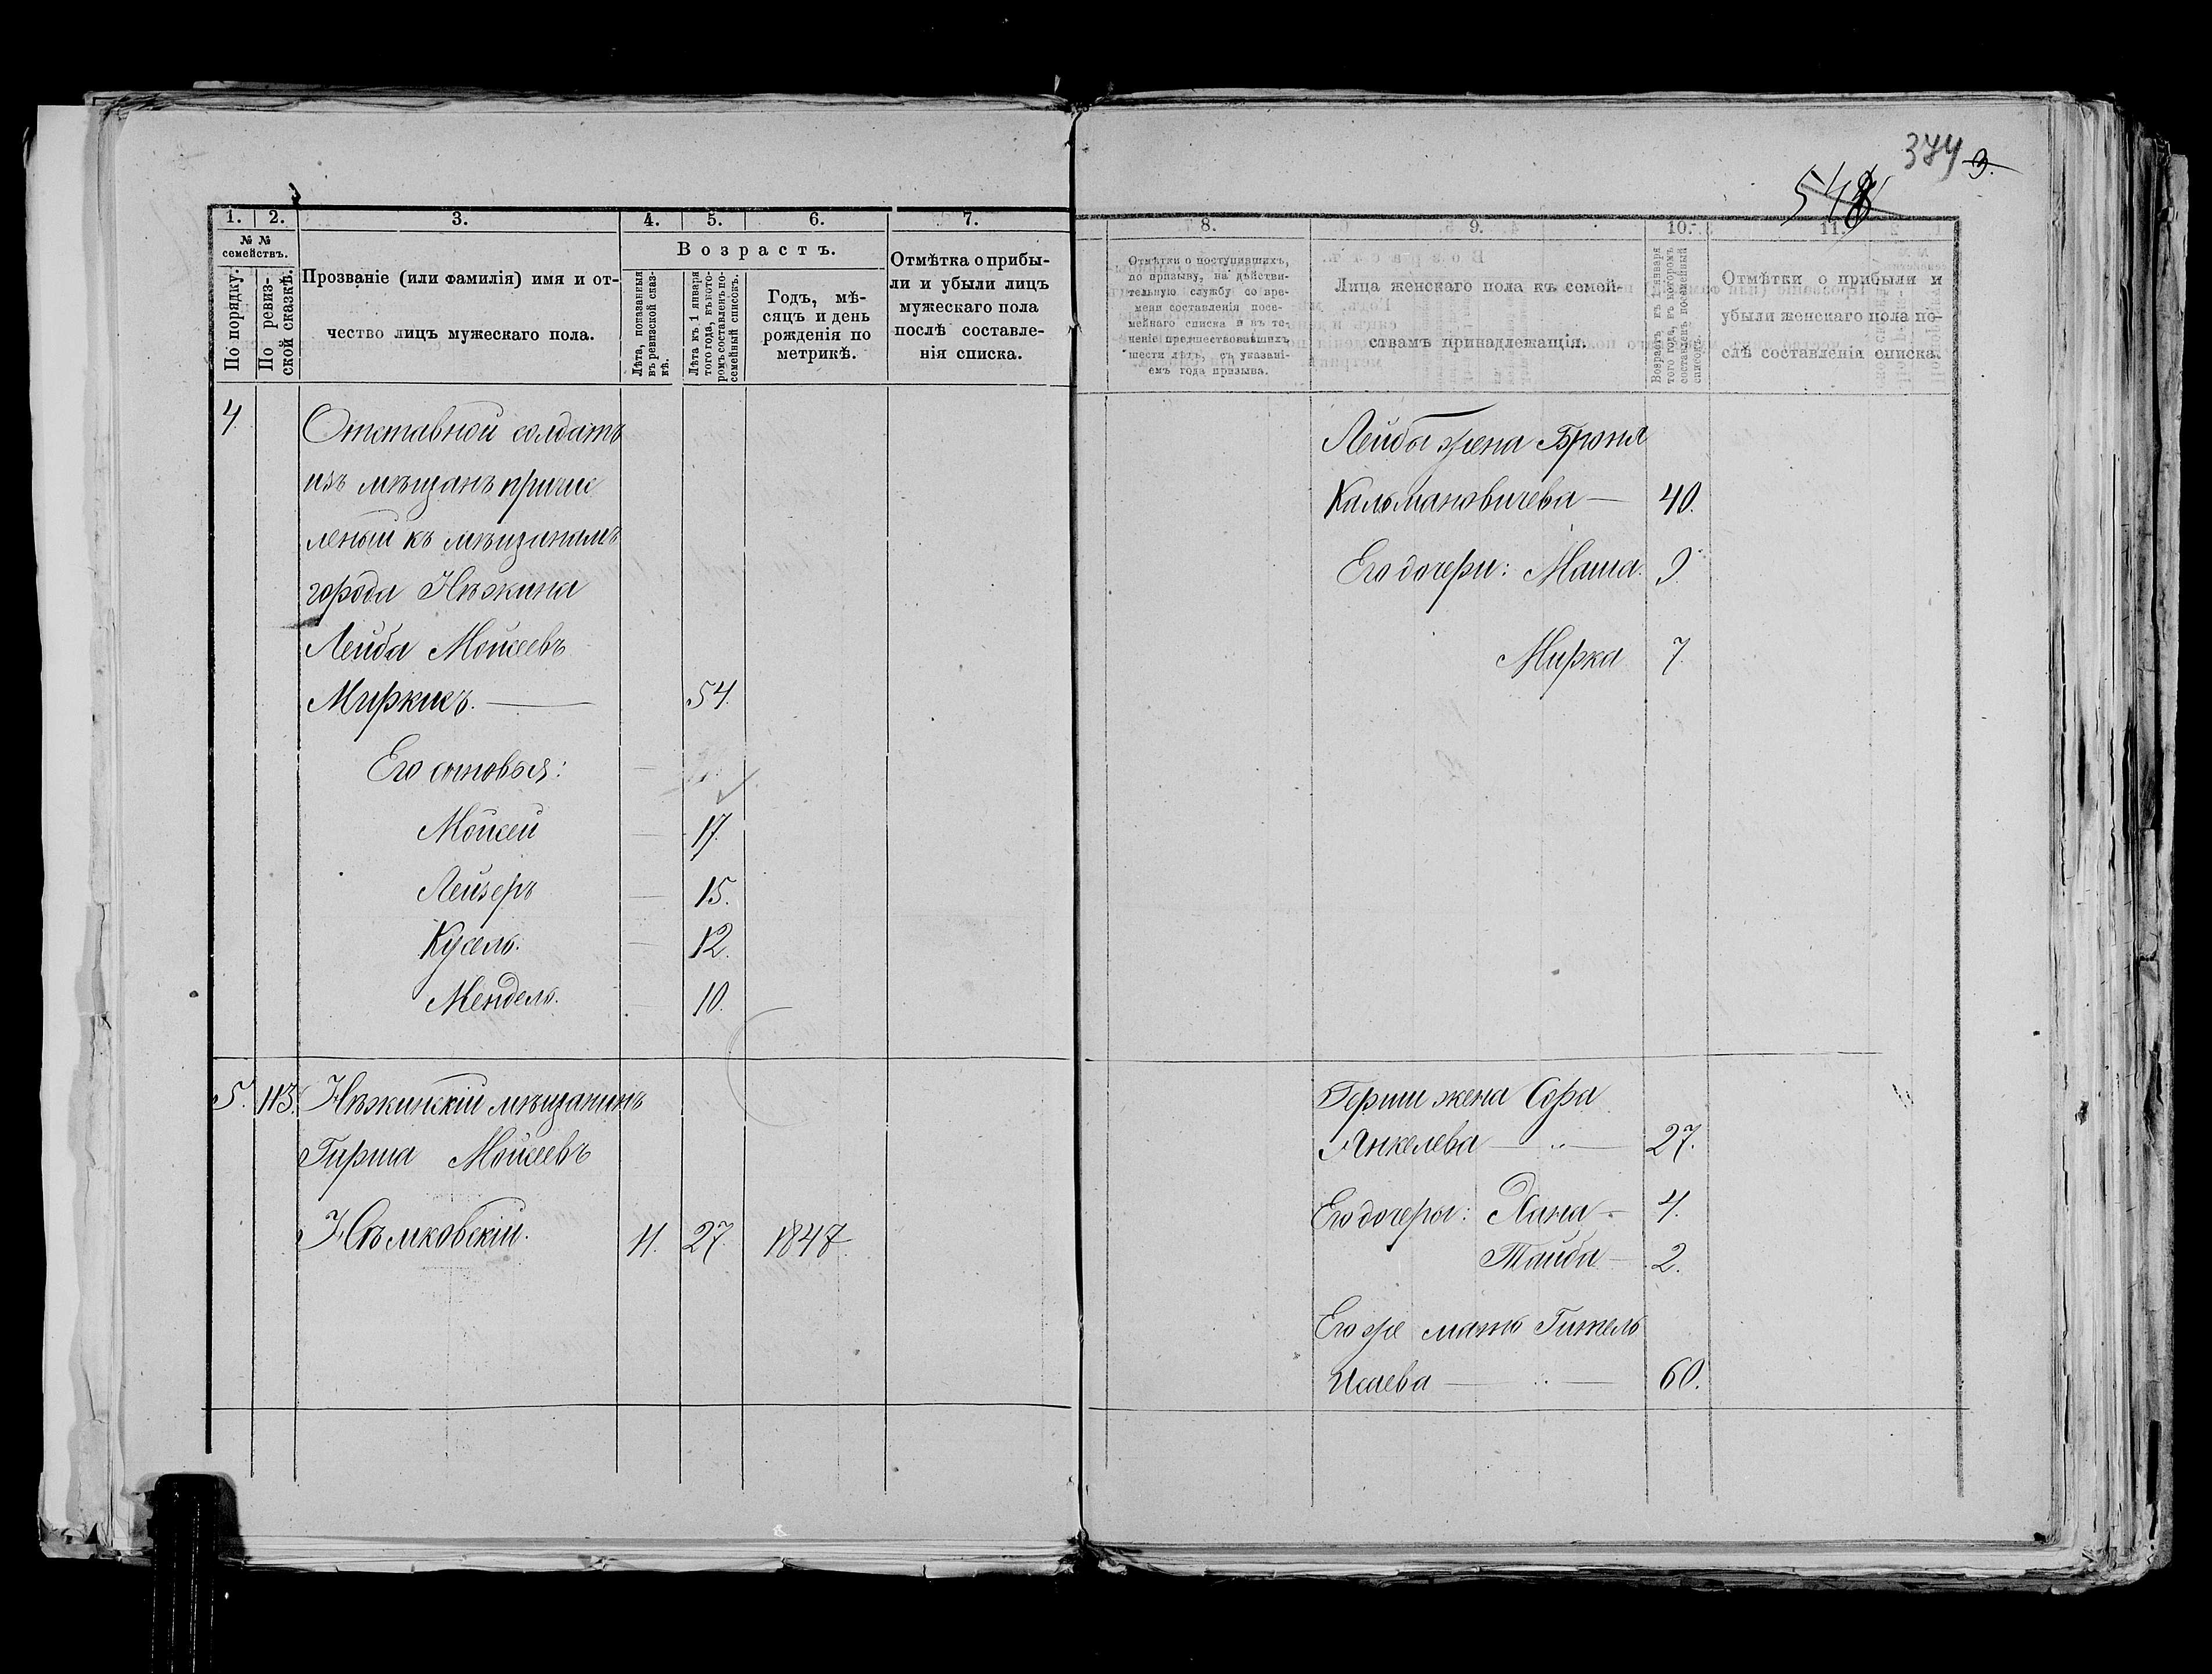 374 9.
548
1. 2. 3. 4. 5. 6. 7.
№ №
семействъ.
По порядку.
По ревиз-
ской сказкѣ.
Прозваніе (или фамилія) имя и от-
чество лицъ мужескаго пола.
Возрастъ.
Лѣта, показанныя
въ ревизской сказ-
кѣ.
Лѣта къ 1 января
того года, въ кото-
ромъ составленъ по-
семейный списокъ.
Годъ, мѣ-
сяцъ и день
рожденія по
метрикѣ.
Отмѣтка о прибы-
ли и убыли лицъ
мужескаго пола
послѣ составле-
нія списка.
4 Отставной солдатъ
изъ мѣщанъ причис
леный къ мѣщанамъ
города Нѣжина
Лейба Мойсеевъ
Миркисъ. — 54.
Его сыновья:
Мойсей — 17.
Лейзеръ — 15.
Кусель. — 12.
Мендель. — 10.
5. 113. Нѣжинскій мѣщанинъ
Гирша Мойсеевъ
Нѣмковскій. 11. 27. 1847.
8. 9. 10. 11.
Отмѣтки о поступившихъ,
по призыву, на дѣйстви-
тельную службу со вре-
мени составленія посе-
мейнаго списка и въ те-
ченіе предшествовавшихъ
шести лѣтъ, съ указані-
емъ года призыва.
Лица женскаго пола къ семей-
ствамъ принадлежащія.
Возрастъ къ 1 января
того года, въ которомъ
составленъ посемейный
списокъ.
Отмѣтки о прибыли и
убыли женскаго пола по-
слѣ составленія списка.
Лейбы жена Броня
Кальмановичева — 40.
Его дочери: Маша. 9.
Мирка 7.
Герши жена Сора
Янкелева — 27.
Его дочеры: Хана — 4.
Тайба — 2.
Его же мать Гитель
Исаева — 60.